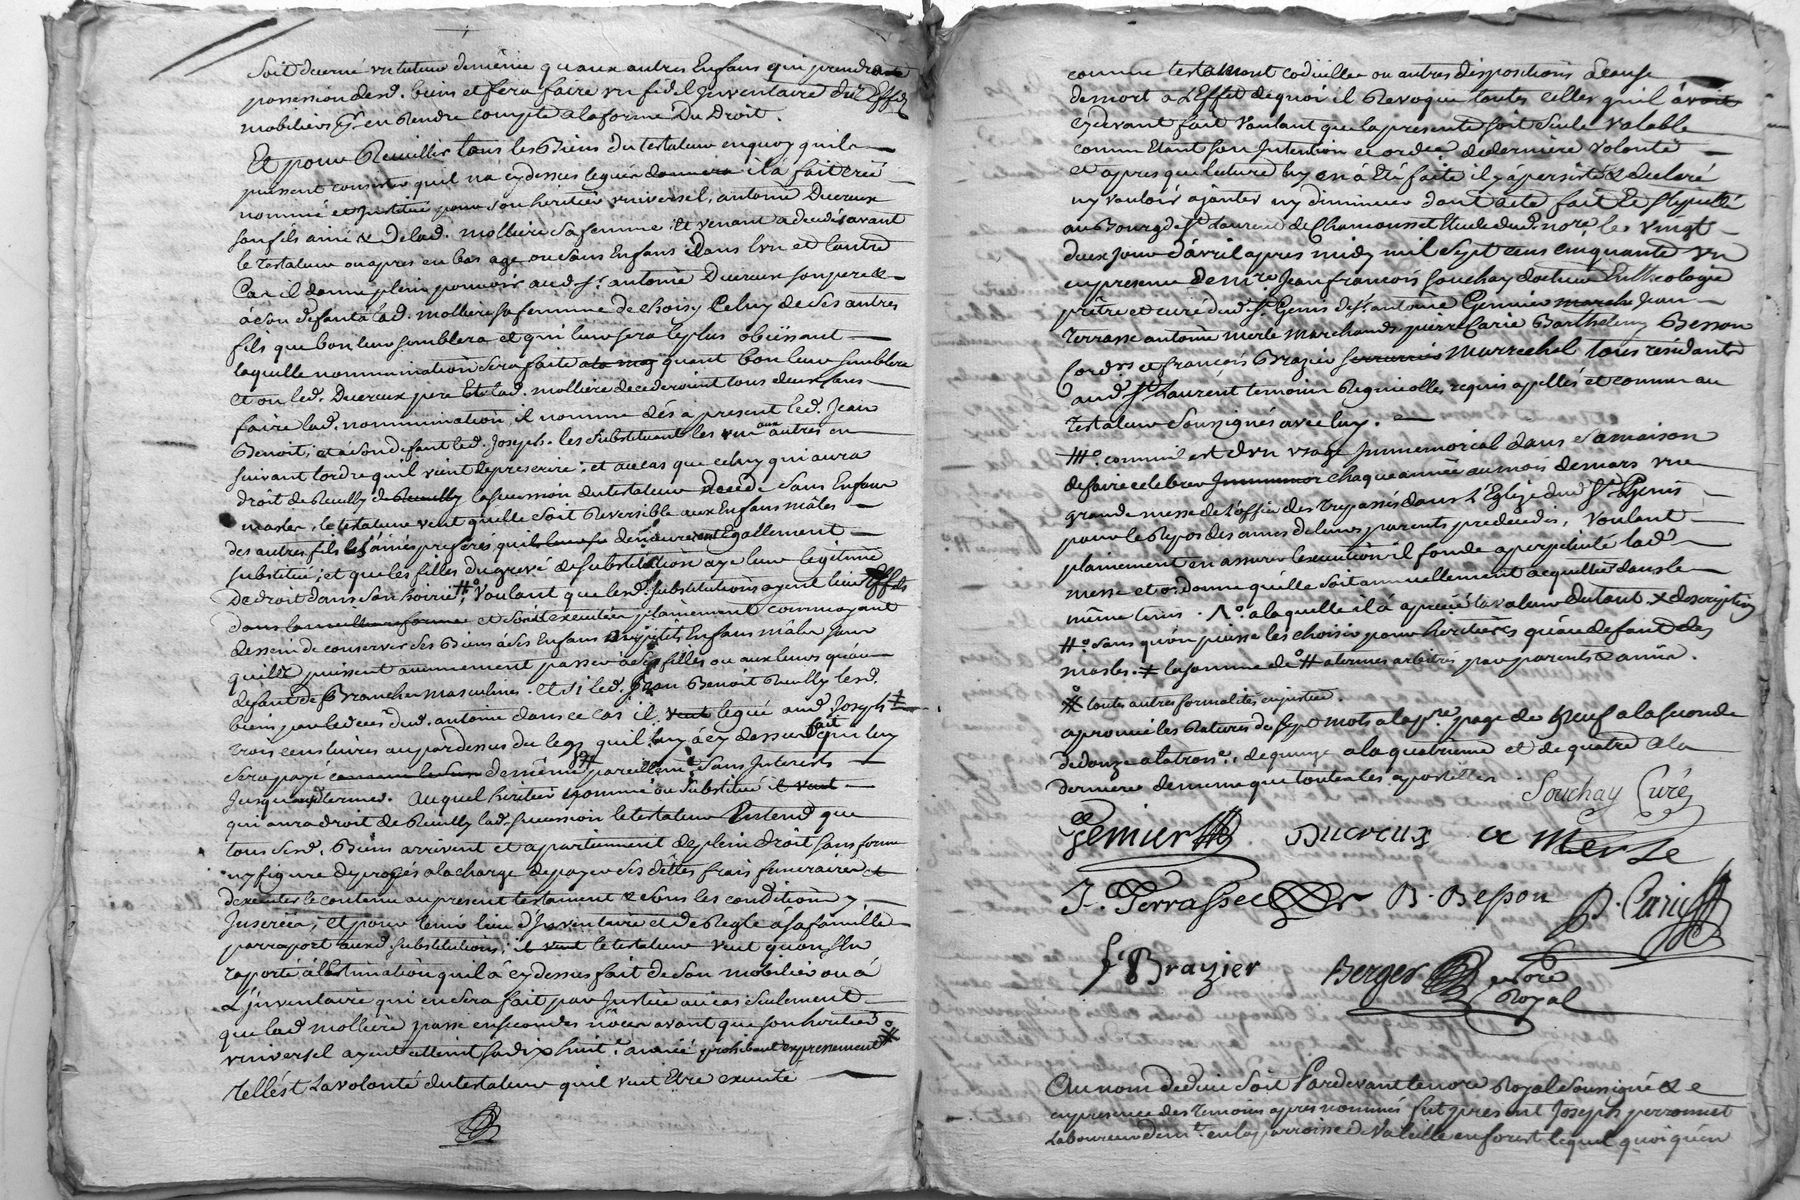 soit decerné un tuteur de même qu'aux autres Enfans qui prendra
possession desd. biens et fera faire un fidel Inventaire des Effets
mobiliers p.r en Rendre compte a la forme Du Droit.
Et pour Recuillir tous les Biens du testateur en quoy qu'ils
puissent consister qu'il n'a cy dessus legués il a fait créé
nommé et Institué pour son heritier universel, antoine Ducreux
son fils ainé & De lad. molliere sa femme, et venant a deceder avant
le testateur ou apres en bas age ou sans Enfans dans l'un et l'autre
Cas il donne plein pouvoir aud. s.r antoine Ducreux son pere &
a son defaut a lad. molliere sa femme de choisir Celuy de ses autres
fils que bon leur semblera et qui leur sera le plus obeissant
laquelle nommination sera faite quant bon leur semblera
et ou led. Ducreux pere Et lad. molliere decederoient tous deux sans
faire lad. nommination, il nomme dés a present led. Jean
Benoit, et a son defaut led. Joseph. les substituant les uns aux autres en
suivant l'ordre qu'il vient de prescrire; et au cas que celuy qui aura
droit de Recuillir la sucession du testateur decede sans Enfans
masles, le testateur veut qu'elle soit Reversible aux Enfans mâles
des autres fils les ainés preferés qui demeurent Egallement
substitués; et que les filles du grevé de substitution aye leur legitime
De droit dans son hoirie #.o Voulant que lesd. substitutions ayent leur Effets
et soit executée plainement comme ayant
dessein de conserver ses Biens a ses Enfans Enfans mâles sans
qu'ils puissent aucunement passer a ses filles ou aux leurs qu'au
defaut de Branches masculines. et si led. Jean Benoit Recuilly lesd.
biens par le deces dud. antoine dans ce cas il legue aud. Joseph
trois cens livres au par dessus du legs qu'il luy a cy dessus fait qui luy
sera payé de même sans Interets
Jusque aux termes. Auquel heritier nommé ou substitué
qui aura droit de Recuilly lad. sucession le testateur Entend que
tous sesd. Biens arrivent et apartiennent de plein droit sans forme
ny figure de procés a la charge de payer ses dêttes frais funeraires &
d'executer le contenu au present testament & sous les conditions y
Inserées, Et pour tenir lieu d'Inventaire et de Regle a sa famille
par raport auxd. substitutions, le testateur veut qu'on s'en
raporte a l'estimation qu'il a cy dessus fait de son mobilier ou a
L'Inventaire qui en sera fait par Justice au cas seulement
que lad. molliere passe en secondes nôces avant que son heritier
universel ayent atteint sa dix huit.e année prohibant expressement
telle est La volonté du testateur qu'il veut Etre executé
comme testament codicille ou autres dispositions a cause
de mort a l'Effet de quoi il Revoque toutes celles qu'il avoit
cy devant fait Voulant que la presente soit seule valable
comme Etant son Intention et ord.e de derniere volonté
et apres que lecture luy en a Eté faite il y a persisté & declaré
n'y vouloir ajouter ny diminuer dont acte fait Le stipullé
au Bourg de S.t Laurent de Chamousset Etude dud. no.re le vingt
deux jour d'avril apres midy mil sept cens cinquante un
en presence de m.re Jean françois souchay docteur En Theologie
prêtre et curé dud. S.t Genis s.r antoine Gemier Jean
Terrasse antoine merle marchands pierre Carie Barthelemy Besson
Cord.rs et françois Brazier marrechal tous residants
aud. S.t Laurent temoins Requis apellés et comme au
testateur soussignés avec luy.
comm'il est d'un usage Immemorial dans sa maison
de faire celebrer chaque année au mois de mars une
grande messe de l'office des trepassés dans l'Eglize dud. S.t Genis
pour le Repos des ames de leurs parents predecedés, Voulant
plainement en assurer l'execution il fonde a perpetuité lad.
messe et ordonne qu'elle soit annuellement acquittée dans le
même tems. a laquelle il a aprecié la valeur du tout
#.o sans qu'on puisse les choisir pour heritieres qu'au defaut des
masles. la somme de # a termes arbitrés par parents & amis.
toutes autres formalités en justice.
aprouvé les Ratures de sept mots a la p.re page de Neuf a la seconde
de douze a la trois.e, de quinze a la quatrieme et de quatre a la
derniere de meme que toutes les apostilles.
Souchay Curé
Gemier Ducreux a Merle
J. Terrasse B. Besson P. Carie
f. Brazier Berger no.re
Royal
Au nom de dieu soit Pardevant le no.re Royal soussigné & e
en presence des temoins apres nommés fut present Joseph perronnet
Laboureur dem.t en la parroisse de Valeille en forest lequel quoiqu'en